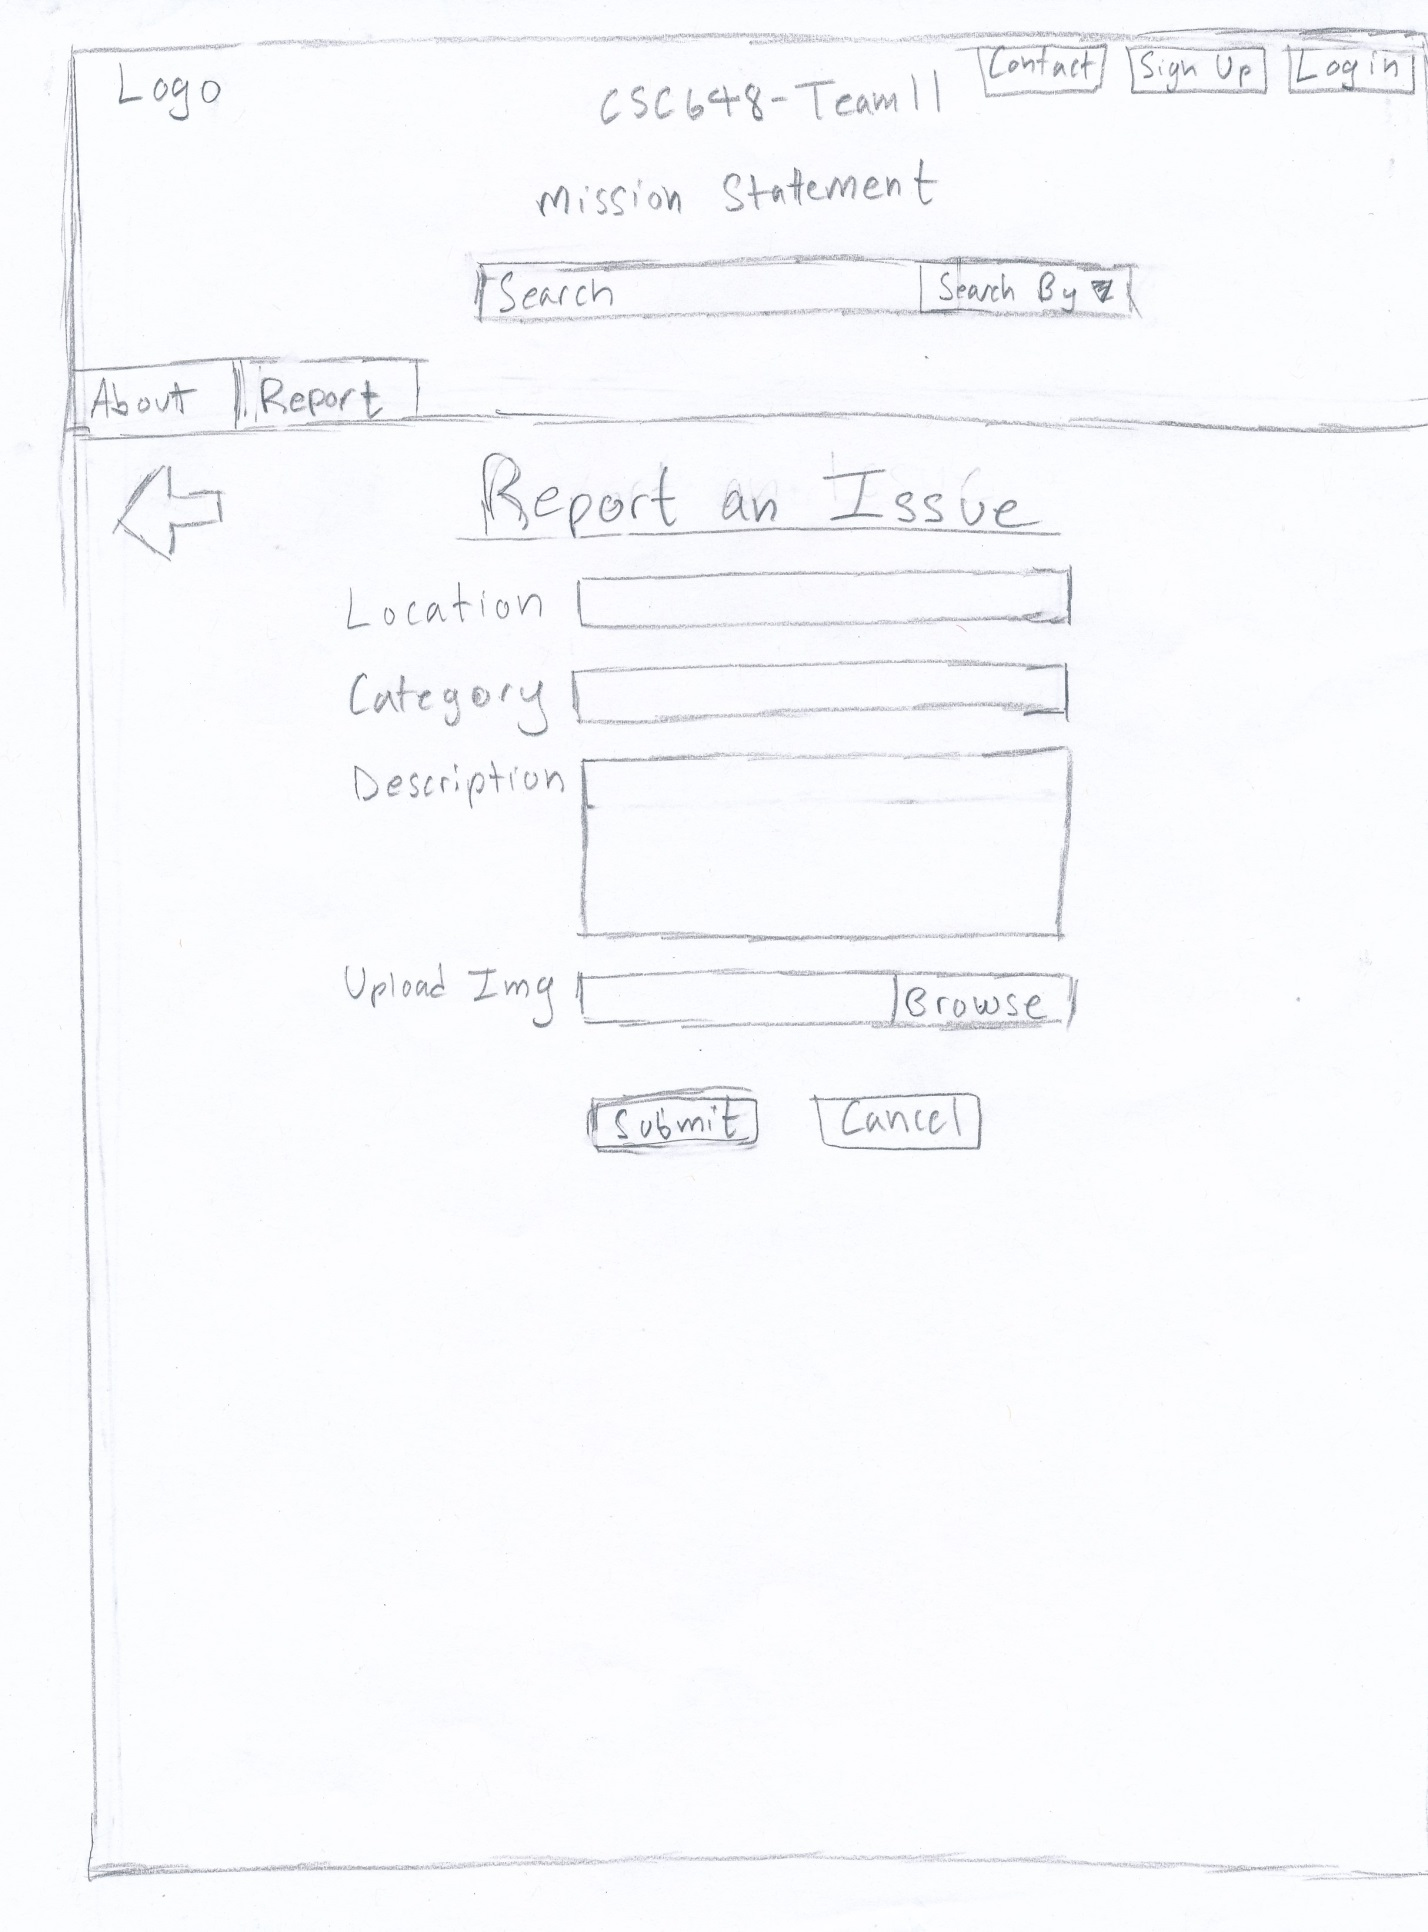 Logo
CSC648-Team11
Contact
Sign Up
Log in
Mission Statement
Search
Search By
About
Report
Report an Issue
Location
Category
Description
Upload Img
Browse
Submit
Cancel